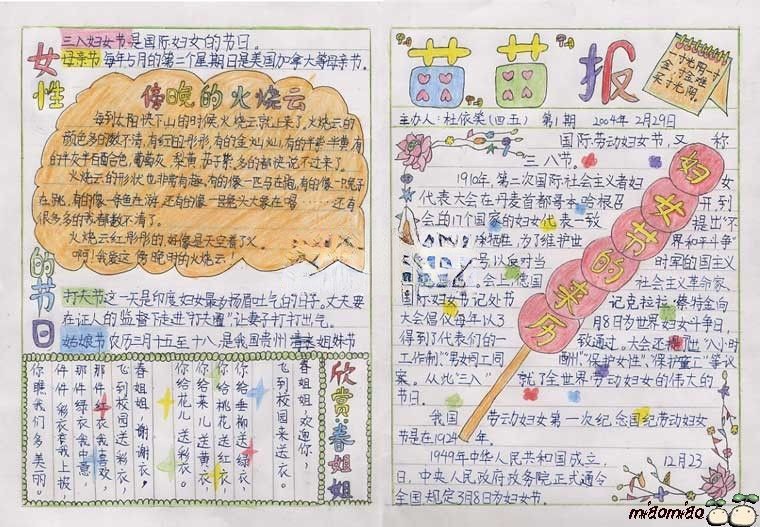 三八妇女节是国际妇女的节日。
母亲节 每年5月的第二个星期日是美国加拿大等母亲节。
女性的节日
傍晚的火烧云
每到太阳快下山的时候火烧云就上来了。火烧云的
颜色多的数不清,有红的彤彤,有的金灿灿,有的半紫半黄,有
的半灰半百合色,葡萄灰,梨黄,茄子紫,多的都说不过来了。
火烧云的形状也非常有趣,有的像一匹马在跑,有的像一只兔子
在跳,有的像一条鱼在游,还有的像一只是头大象在唱……还有
很多多的我都数不清了。
火烧云红彤彤的,好像是天空着了火。
啊!我爱这傍晚时的火烧云!
打夫节 这一天是印度妇女最多扬眉吐气的日子。丈夫要
在证人的监督下走进“打夫圈”,让妻子打打出气。
姑娘节 农历二月十五至十八,是我国贵州 姐妹节
欣赏·春姐姐
春姐姐,欢迎你,
飞到校园来送衣。
你给垂柳送绿衣,
你给桃花送红衣,
你给菜儿送黄衣,
你给花儿送彩衣。
春姐姐,谢谢衣,
飞到校园送彩衣,
那件红衣我喜欢,
那件绿衣我中意,
件件彩衣套我上披,
你瞧我们多美丽。
苗苗报
一寸光阴一寸
金,寸金难
买寸光阴。
主办人:杜依笑(四五) 第1期 2004年2月29日
妇女节的来历
国际劳动妇女节,又称
三八节。
1910年,第二次国际社会主义者妇女
代表大会在丹麦首都哥本哈根召开,到
会的17个国家的妇女代表一致提出“不
为了维护世界和平斗争”
号以反对当时军的国主义
会上,德国社会主义革命家
国际妇女节记处书记克拉拉·蔡特金向
大会倡仪每年以3月8日为世界妇女斗争日,
得到了代表们的一致通过。大会还提出“八小时
工作制”、“男女同工同酬”“保护女性”、“保护童工”等议
案。从此“三八”就了全世界劳动妇女的伟大的
节日。
我国劳动妇女第一次纪念国纪劳动妇女
节是在1924年。
1949年中华人民共和国成立,12月23
日,中央人民政府政务院正式通令
全国规定3月8日为妇女节。
miaomiao